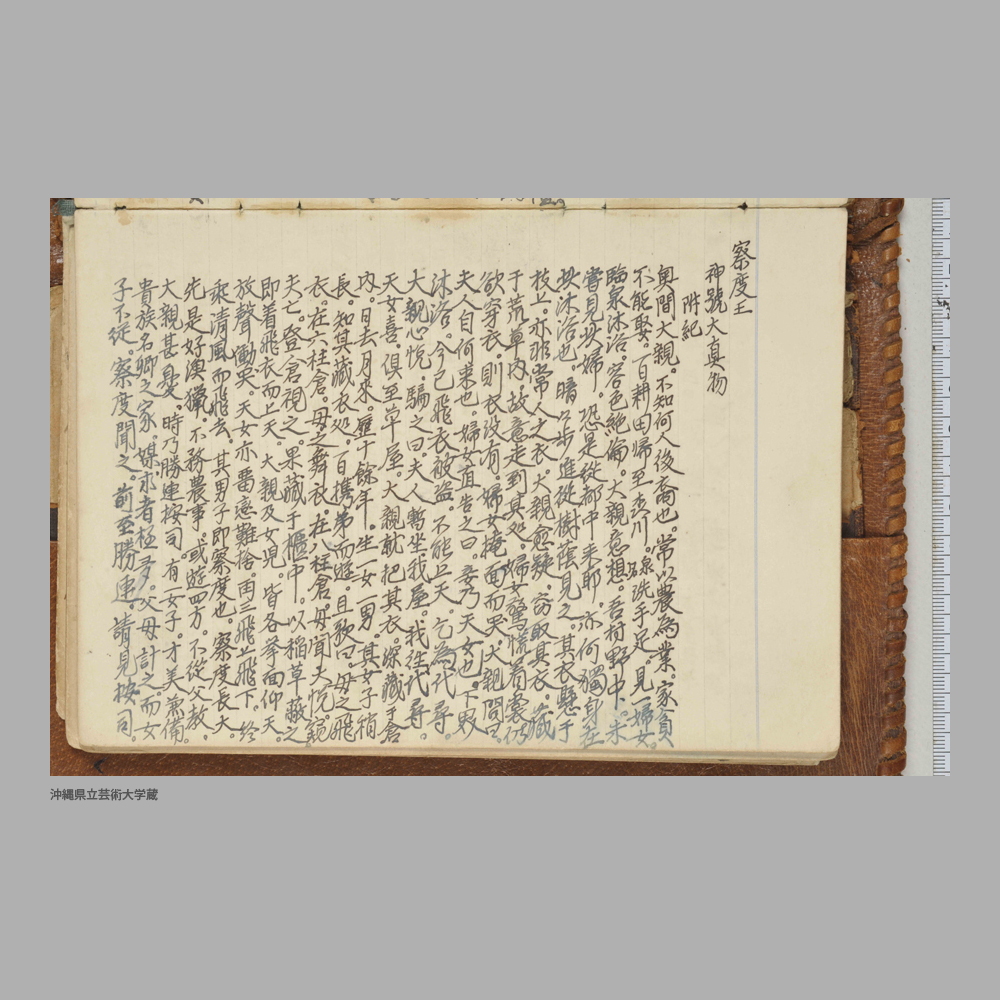 察度王
神號大真物
附紀
奥間大親。不知何人後裔也。常以農為業。家貧
不能娶。一日耕田歸至森川。洗手足。見一婦女。
臨泉沐浴。容色絶倫。大親意想。吾村野中。未
嘗見此婦。恐是從都中来耶。亦何獨身在
此沐浴也。暗〻歩進從樹蔭見之。其衣懸于
枝上。亦非常人之衣。大親愈疑。窃取其衣。蔵
于荒草内。故意走到其処。婦女驚慌着裳仍
欲穿衣。則衣没有。婦女掩面而哭。大親問曰。
夫人自何来也。婦女直告之曰。妾乃天女也。下界
沐浴。今已飛衣被盗。不能上天。乞為代尋。
大親心悦。騙之曰。夫人暫坐我屋。我往代尋。
天女喜。倶至草屋。大親就把其衣。深藏于倉
内。日去月来。歴十餘年。生一女一男。其女子稍
長。知其藏衣処。一日携弟而遊。且歌曰。母之飛
衣。在六柱倉。母之舞衣。在八柱倉。母聞大悦。窺
夫亡。登倉視之。果藏于櫃中。以稲草蔽之。
即着飛衣而上天。大親及女児。皆各挙面仰天。
放聲慟哭。天女亦留恋難捨。再三飛上飛下。終
乘清風而飛去。其男子即察度也。察度長大
先是好漁獵。不務農事。或遊四方。不從父教。
大親甚憂。時乃勝連按司。有一女子。才美兼備。
貴族名卿之家。媒求者極多。父母計之。而女
子不従。察度聞之。前至勝連。請見按司。
沖縄県立芸術大学蔵